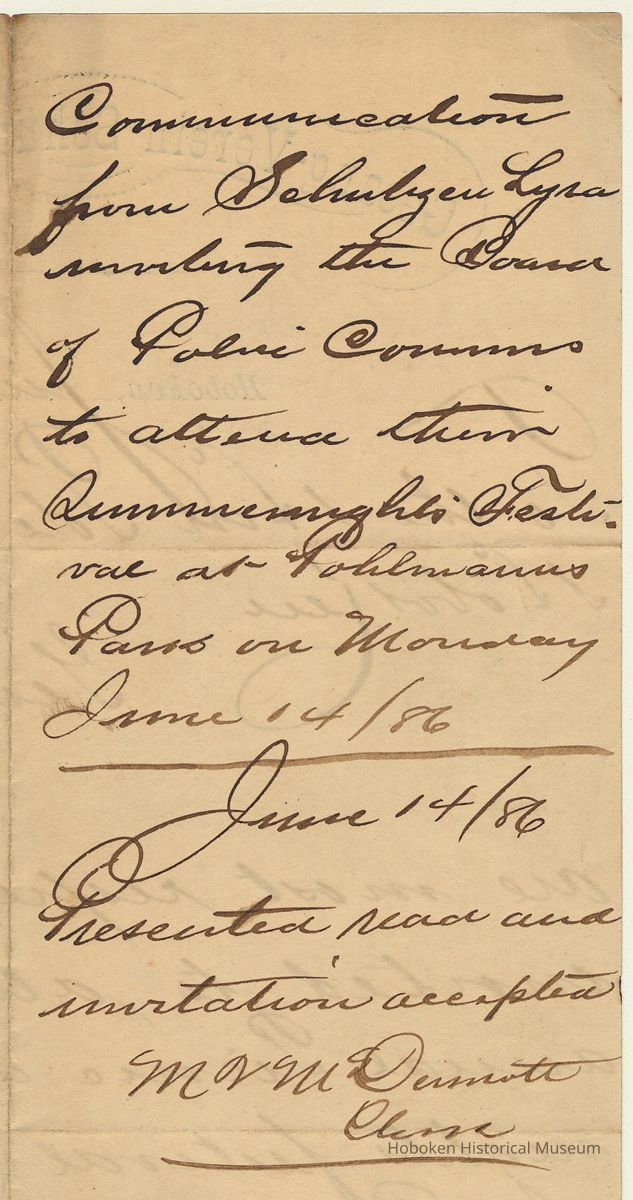 Communication
from Schutzen Lyra
inviting the Board
of Police Comms
to attend their
Summernights Festi-
val at Pohlmanns
Park on Monday
June 14/86
June 14/86
Presented read and
invitation accepted
M V McDermott
Clerk
Hoboken Historical Museum